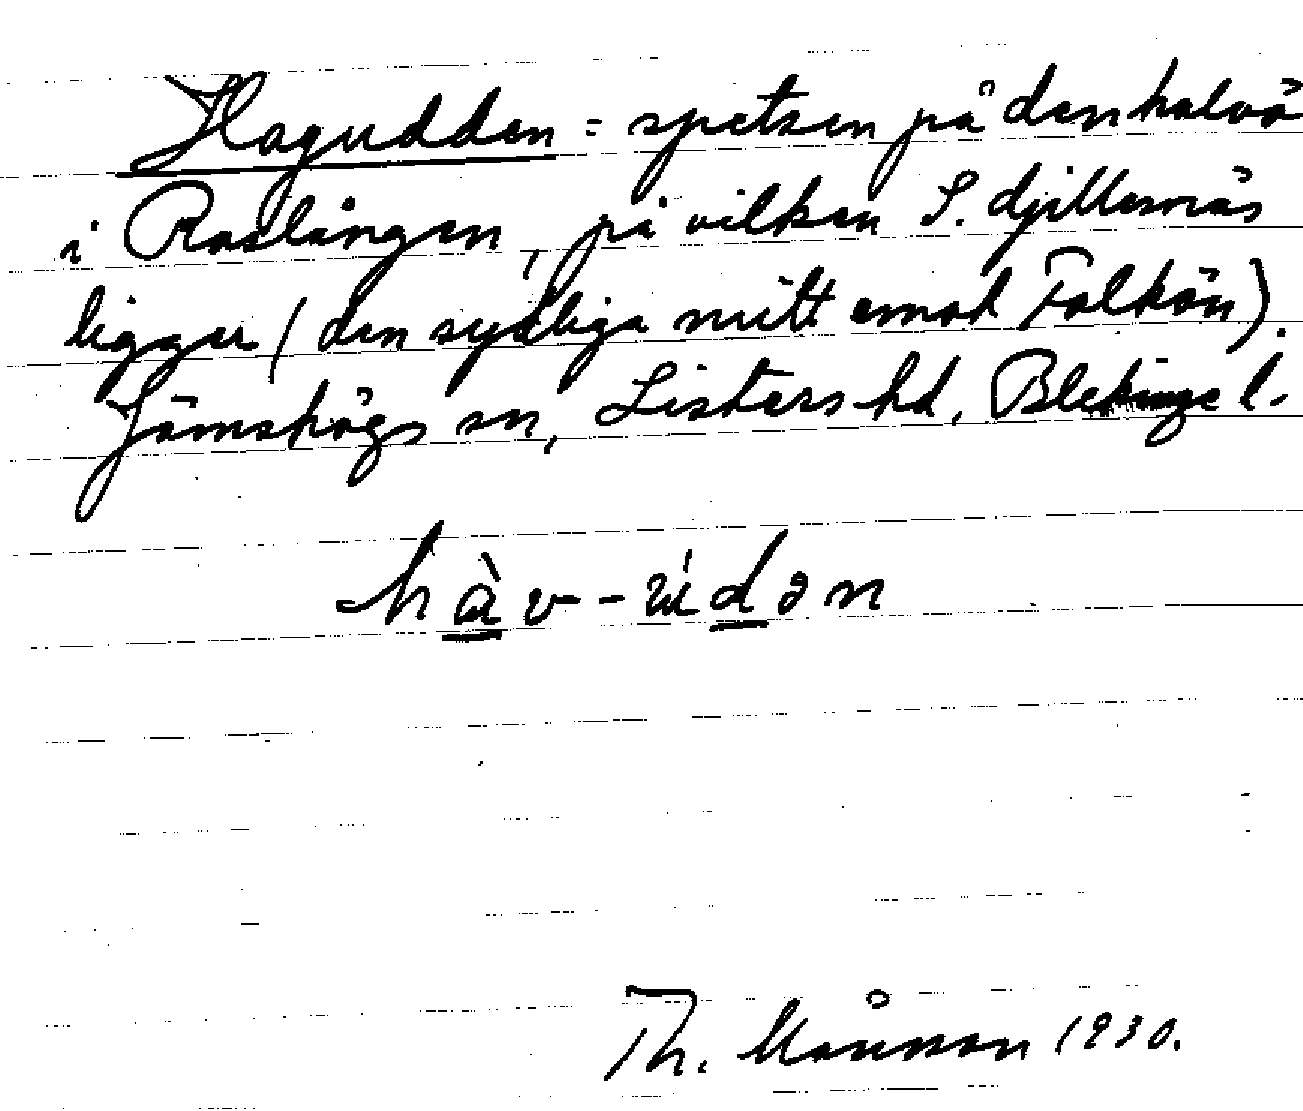 Hagudden = spetsen på den halvö
i Raslången, på vilken S. djillesnäs
ligger (den sydliga mitt emot Falkön).
Jämshögs sn, Listers hd, Blekinge l.
hàv-údən
Th. Månsson 1930.